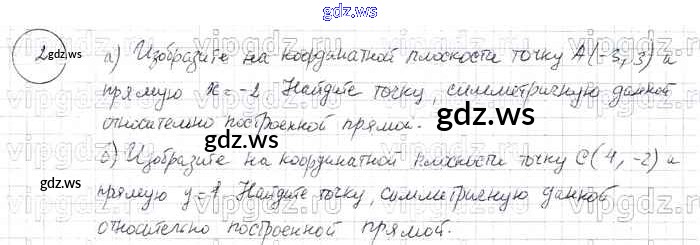 gdz.ws
2 gdz.ws а) Изобразите на координатной плоскости точку A(-5,3) и
прямую x=-2. Найдите точку, симметричную данной
относительно построенной прямой.
gdz.ws gdz.ws
б) Изобразите на координатной плоскости точку C(4,-2) и
gdz.ws прямую y=1. Найдите точку, симметричную данной
относительно построенной прямой.
gdz.ws gdz.ws